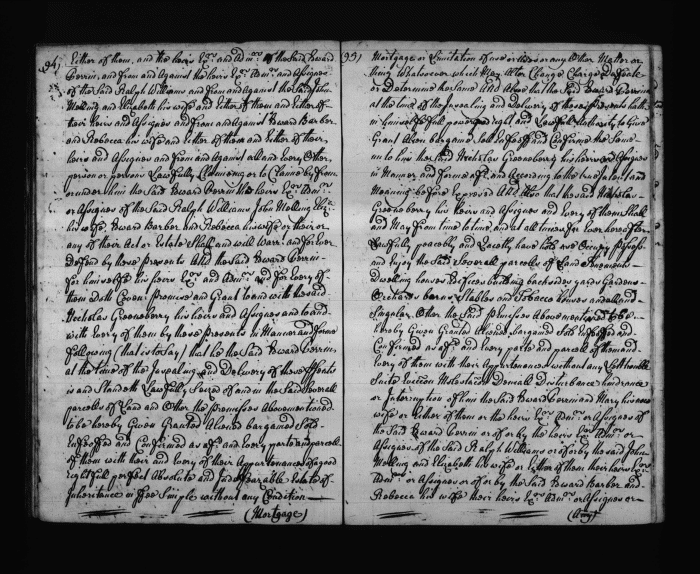 94)
Either of them, and the heirs Exrs and Admrs of the Said Edward
Berrin, and from and Against the heirs Exrs Admrs and Assignes
of the Said Ralph Williams and from and Against the Said John
Molling and Elizabeth his wife and Either of them and Either of
their heirs and Assignes and from and Against Edward Barber
and Rebecca his wife and Either of them and Either of their
heirs and Assignes and from and Against all and Every Other
person or persons Lawfully Claiming or to Claime by from
or under him the Said Edward Berrin his heirs Exrs Admrs
or Assignes of the Said Ralph Williams John Molling Eliz:
his wife, Edward Barber and Rebecca his wife or their or
any of their Act or Estate Shall and will Warr: and for Ever
Defend by these presents And the Said Edward Berrin
for himselfe his heirs Exrs and Admrs and for Every of
them doth Coven promise and Grant to and with the said
Nicholas Greeneberry his heirs and Assignes and to and
with Every of them by these presents in Manner and forme
following (that is to Say) that he the Said Edward Berrin
at the time of the Ensealing and Delivery of these psents
is and Standeth Lawfully Seized of and in the Said Severall
parcells of Land and Other the premises Abovementioned
to be hereby Given Granted Aliened bargained Sold
Enfeoffed and Confirmed as afd and Every parte and parcell
of them with their and Every of their Appurtenances of a good
rightfull perfect Absolute and Indefeazable Estate of
Inheritance in ffee Simple without any Condition
(Mortgage)
95)
Mortgage or Limitation of use or uses or any Other Matter or
thing Whatsoever which May Alter Change Charge Defeate
or Determine the same And Also that the Said Edward Berrin
at the time of the Ensealing and Delivery of these presents hath
in himselfe full power right and Lawfull Authority to Give
Grant Alien bargaine Sell Enfeoffe and Confirme the Same
unto him the Said Nicholas Greeneberry his heires and Assignes
in Manner and forme afd: and According to the true Intent and
Meaning before Expressed And Also that he said Nicholas
Greeneberry his heirs and Assignes and Every of them Shall
and May from time to time, and at all times for Ever hereafter
Lawfully peaceably and Quietly have hold use Occupy Possess
and Enjoy the Said Severall parcells of Land Tenements
Dwelling houses Edifices building backsides yards Gardens
Orchards barns, Stables and Tobacco houses and all and
Singular Other the Said Premises Abovementioned to be
hereby Given Granted Aliened bargained Sold Enfeoffed and
Confirmed as afd: and Every parte and parcell of them and
Every of them with their Appurtenances without any Lett trouble
Suite Eviction Molestation Deniall Disturbance hindrance
or Interruption of him the Said Edward Berrin and Mary his now
wife or Either of them or the heirs Exrs Admrs or Assignes of
the Said Edward Berrin or of or by the heirs Exrs Admrs or
Assignes of the Said Ralph Williams or of or by the said John
Molling and Elizabeth his wife or Either of them their heirs Exrs
Admrs or Assignes or of or by the Said Edward Barber and
Rebecca his wife their heirs Exrs Admrs or Assignes or
(Any)